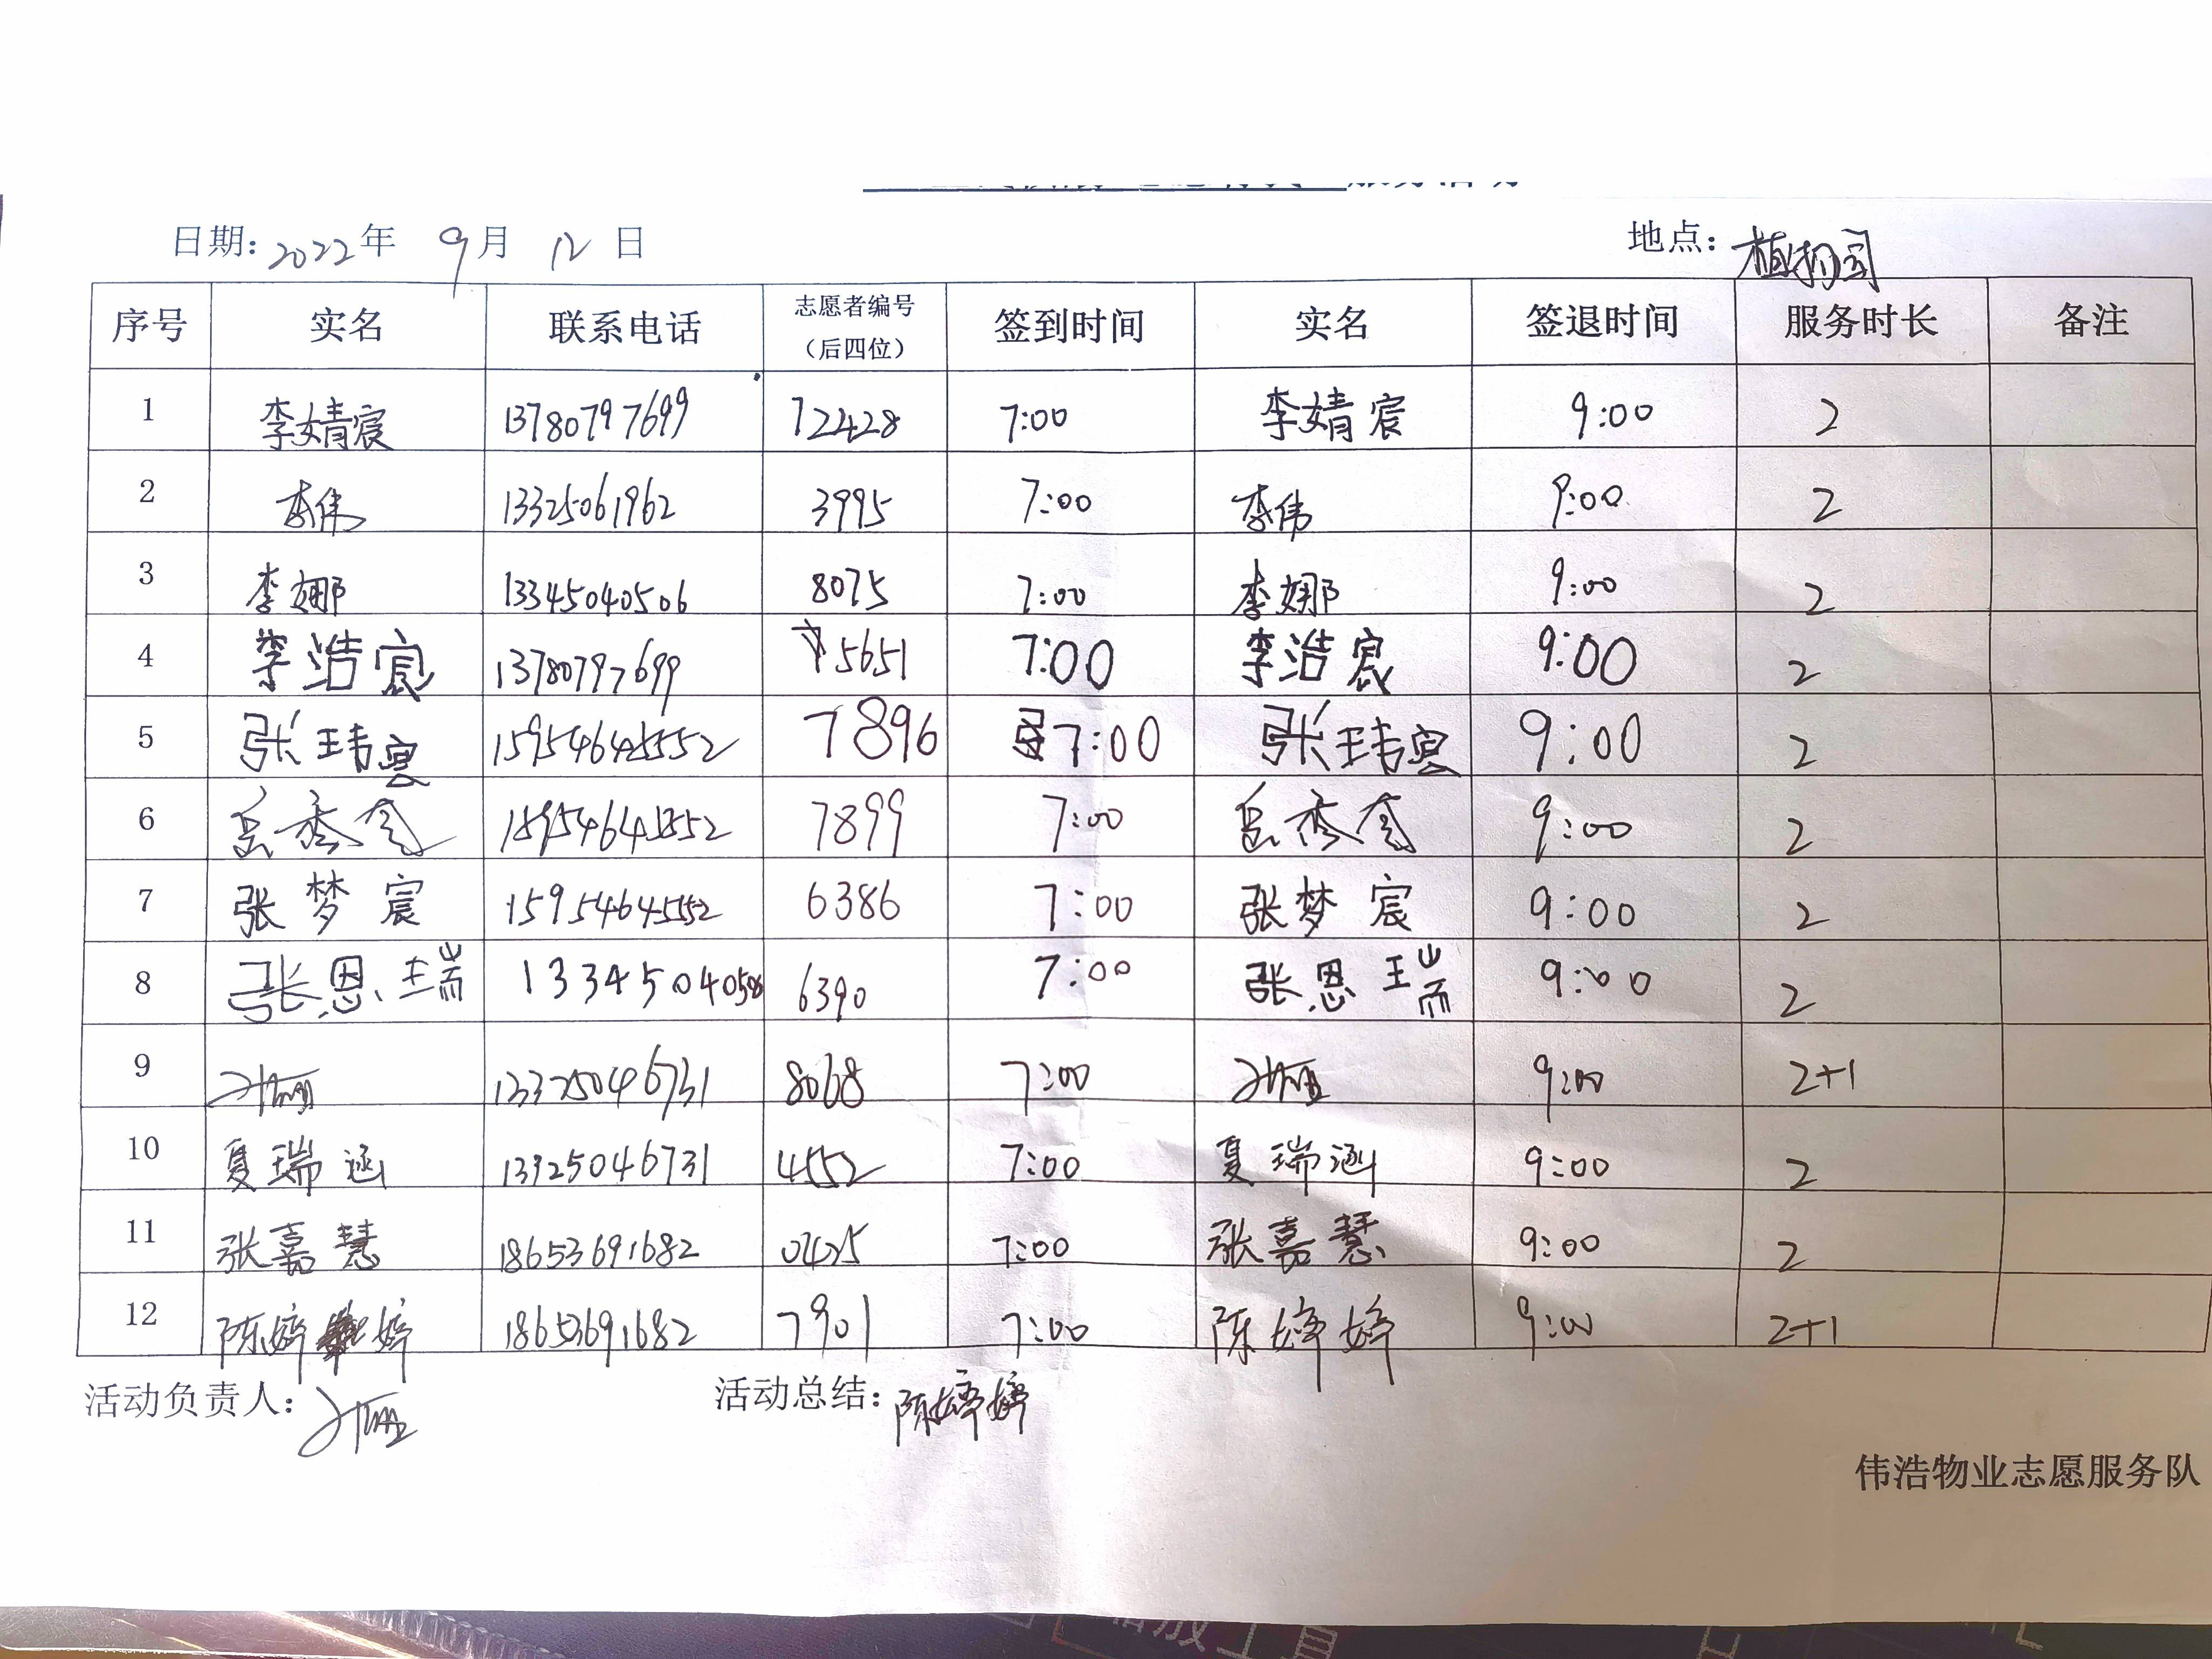 日期：2022年 9月 12日 地点：植物园
序号 实名 联系电话 志愿者编号（后四位） 签到时间 实名 签退时间 服务时长 备注
1 李婧宸 13780797699 72428 7:00 李婧宸 9:00 2
2 李伟 13325061962 3995 7:00 李伟 9:00 2
3 李娜 13345040506 8075 7:00 李娜 9:00 2
4 李浩宸 13780797699 5651 7:00 李浩宸 9:00 2
5 张玮宸 15954645552 7896 7:00 张玮宸 9:00 2
6 7899 7:00 9:00 2
7 张梦宸 15954645552 6386 7:00 张梦宸 9:00 2
8 张恩瑞 13345040506 6390 7:00 张恩瑞 9:00 2
9 13325046731 8068 7:00 9:00 2+1
10 夏瑞涵 13325046731 4552 7:00 夏瑞涵 9:00 2
11 张嘉慧 18653691682 0425 7:00 张嘉慧 9:00 2
12 陈婷婷 18653691682 7901 7:00 陈婷婷 9:00 2+1
活动负责人： 活动总结：陈婷婷
伟浩物业志愿服务队